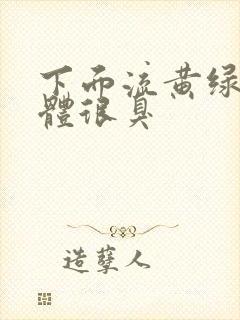 下面流黄绿
體很臭
造孽人